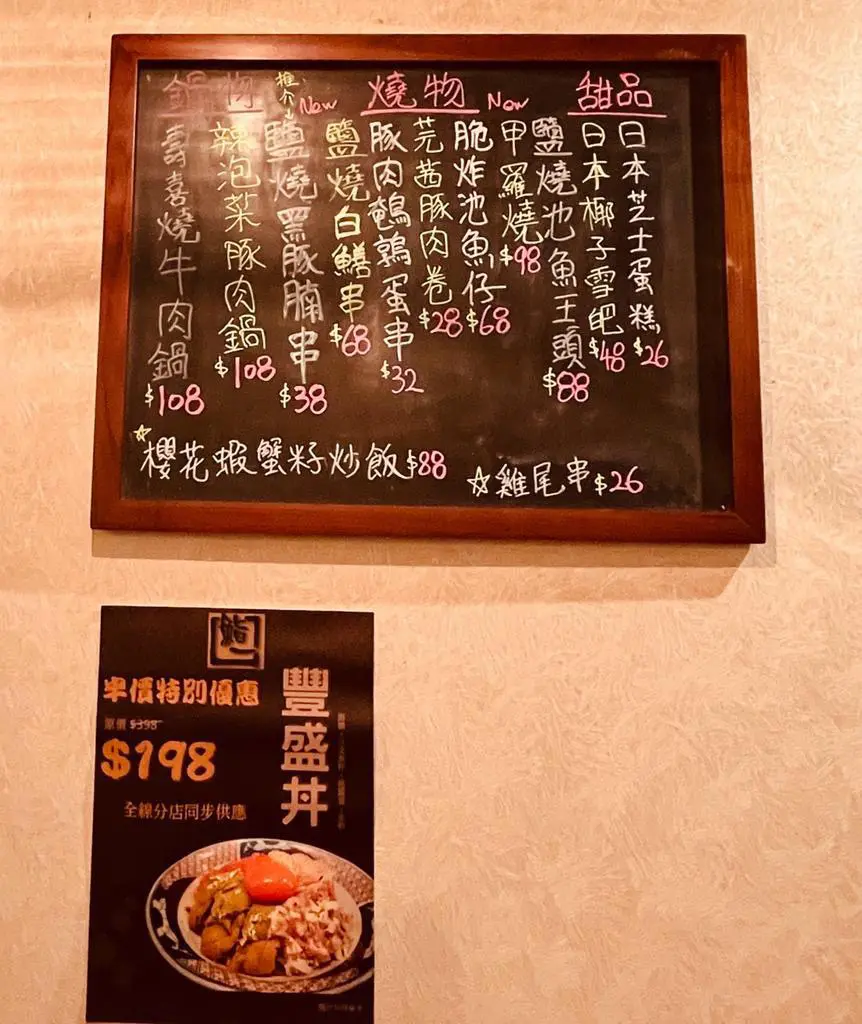 鍋物
壽喜燒牛肉鍋 $108
辣泡菜豚肉鍋 $108
燒物
推介↓ New
鹽燒黑豚腩串 $38
鹽燒白鱔串 $68
豚肉鵪鶉蛋串 $32
芫茜豚肉卷 $28
脆炸池魚仔 $68
New
甲羅燒 $98
鹽燒池魚王頭 $88
甜品
日本椰子雪吧 $48
日本芝士蛋糕 $26
☆櫻花蝦蟹籽炒飯 $88
☆雞尾串 $26
半價特別優惠
原價 $398
$198
全線分店同步供應
豐盛丼